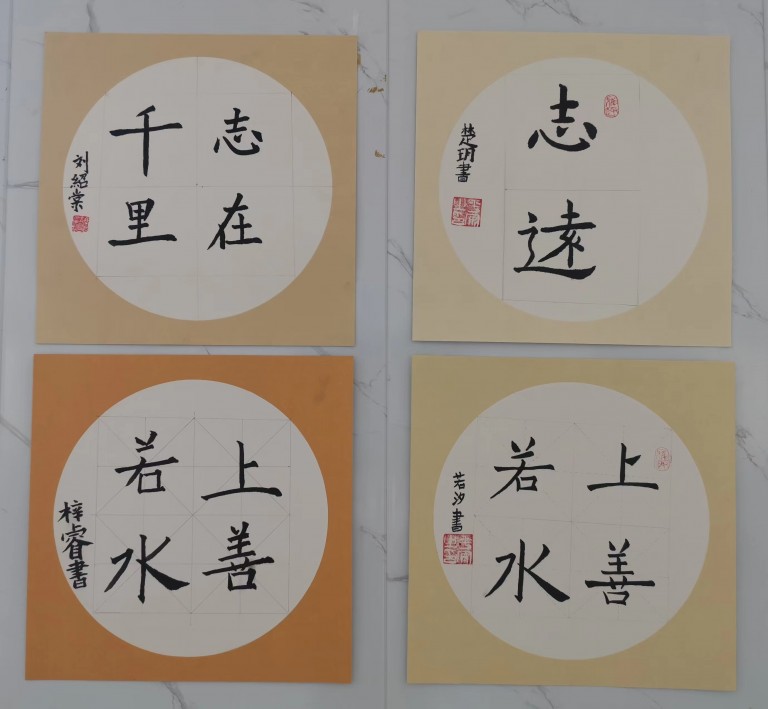 志在
千里
刘紹棠
志遠
楚玥書
上善
若水
梓睿書
上善
若水
若汐書